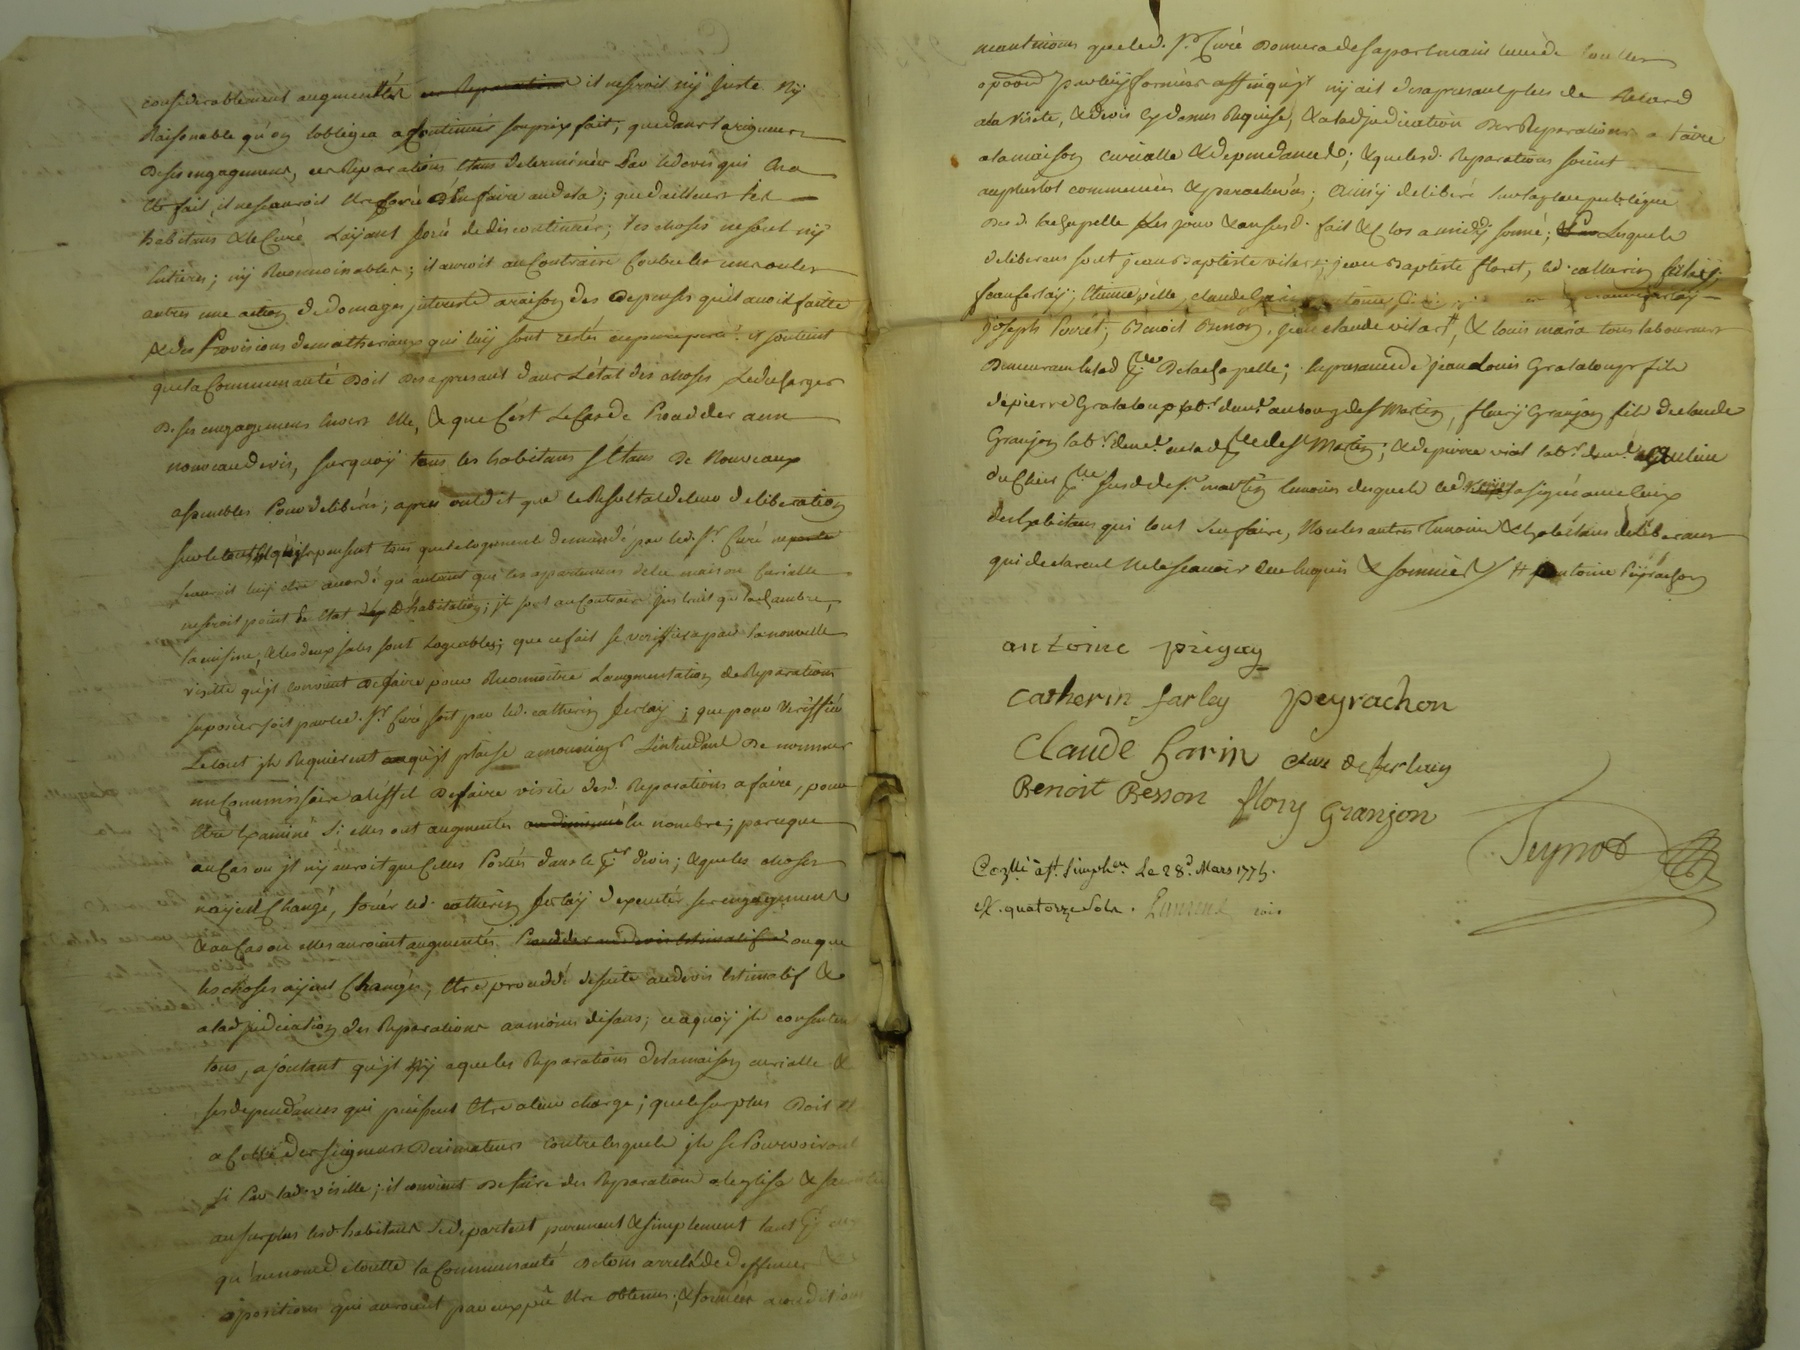 considerablement augmentées ces Reparations il ne seroit ny juste Ny
Raisonable qu'on l'obligea a continuer son prix fait, que dans la rigueur
De ses engagemens, ces Reparations étans determinées Par le devis qui En a
été fait, il ne sauroit être forcé d'En faire au dela; que d'ailleurs les
habitans & le Curé L'ayant forcé de discontinuer; les choses ne sont ny
Entieres; ny Reconnoissables; il auroit au Contraire Contre les uns ou les
autres une action de domages interests a raison des depenses qu'il avoit faitte
& des Provisions de matheriaux qui luy sont restés en pure perte: et soutient
que la Communauté Doit Des apresant dans L'état des choses Le decharger
De ses engagemens Envers Elle, & que C'est Le Cas de Proceder a un
nouveau devis, sur quoy tous les habitans s'étans De Nouveaux
assemblés Pour deliberer; apres ont dit que le Resultat de leur deliberation
sur le tout est qu'ils pensent tous que le logement demandé par led. Sr. Curé ne
sauroit luy être accordé qu'autant que les apartemens de la maison Curialle
ne seroit point En Etat d'habitation; jls sont au Contraire jnstruits que la chambre,
la cuisine, & les deux sales sont Logeables; que ce fait se veriffiera par la nouvelle
visitte qu'jl convient de faire pour Reconnoitre L'augmentation de Reparations
suposées soit par led. Sr. Curé soit par led. catherin ferlay; que pour Veriffier
Le tout jls Requierent qu'jl plaise a monseigr. L'intendant De nommer
un Commissaire a l'effet De faire visite desd. Reparations a faire, pour
être Examiné si elles ont augmentés ou diminué le nombre; parceque
au Cas ou jl n'y auroit que Celles Portés dans le pr. devis; & que les choses
n'ayent Changé, forcer led. catherin ferlay d'executer ses engagemens
& au Cas ou elles auroient augmentés Proceder au devis Estimatif ou que
les choses ayent Changés, être procedé desuite au devis Estimatif &
a l'adjudication des Reparations au moins disans; ce a quoy jls consentent
tous, ajoutant qu'jl n'y a que les Reparations de la maison curialle &
ses dependances qui puissent être a leur charge; que le surplus Doit
a Celle des seigneurs Decimateurs contre lesquels jls se Pourvoiront
si Par lad. visitte; il convient De faire des Reparations a l'eglise &
au surplus lesd habitans se departent purement & simplement tant
qu'au nom de toutte la Communauté De tous arrets de deffences
opositions qui auroient par eux pû être obtenus; & formées
neantmoins que led. Sr. Curé Donnera de sa part main levée de touttes
par luy formées affinqu'jl n'y ait des apresant plus de Retard
a la visite, & devis cy dessus Requise, & a l'adjudication Des Reparations a faire
a la maison curialle & dependances; & que lesd. Reparations soient
au plustot commencées & parachevés; ainsy deliberé sur la place publique
Dud. la chapelle Les jour & an susd. fait & Clos a midy sonné; Lesquels
deliberans sont jean Baptiste vilars; jean Baptiste floret, led. catherin ferlay;
jean ferlay; Etienne ville, claude Garin
joseph Poncet; Benoit Besson, jean claude vilart, & louis maria tous laboureurs
Demeurans en lad. psse. De la chapelle; En presence de jean Louis Grataloup fils
de pierre Grataloup labr. demt. au bourg de st Martin, fleury Granjon fils de claude
Granjon labr. demt. en lad. psse. de st Martin; & de pierre vial labr. demt. au lieu
du Chier psse. susd. de st. martin temoins lesquels led. a signé avec ceux
des habitans qui l'ont sceu faire, Non les autres Temoins & habitans deliberans
qui declarent Ne le scavoir De ce Enquis & sommés / # antoine Peyrachon
antoine prigay
Catherin farley peyrachon
Claude Garin
Benoit Besson flory Granjon
Teyrnod
Conllé. à St. Simph.en Le 28e. Mars 1775.
R. quatorze sols.